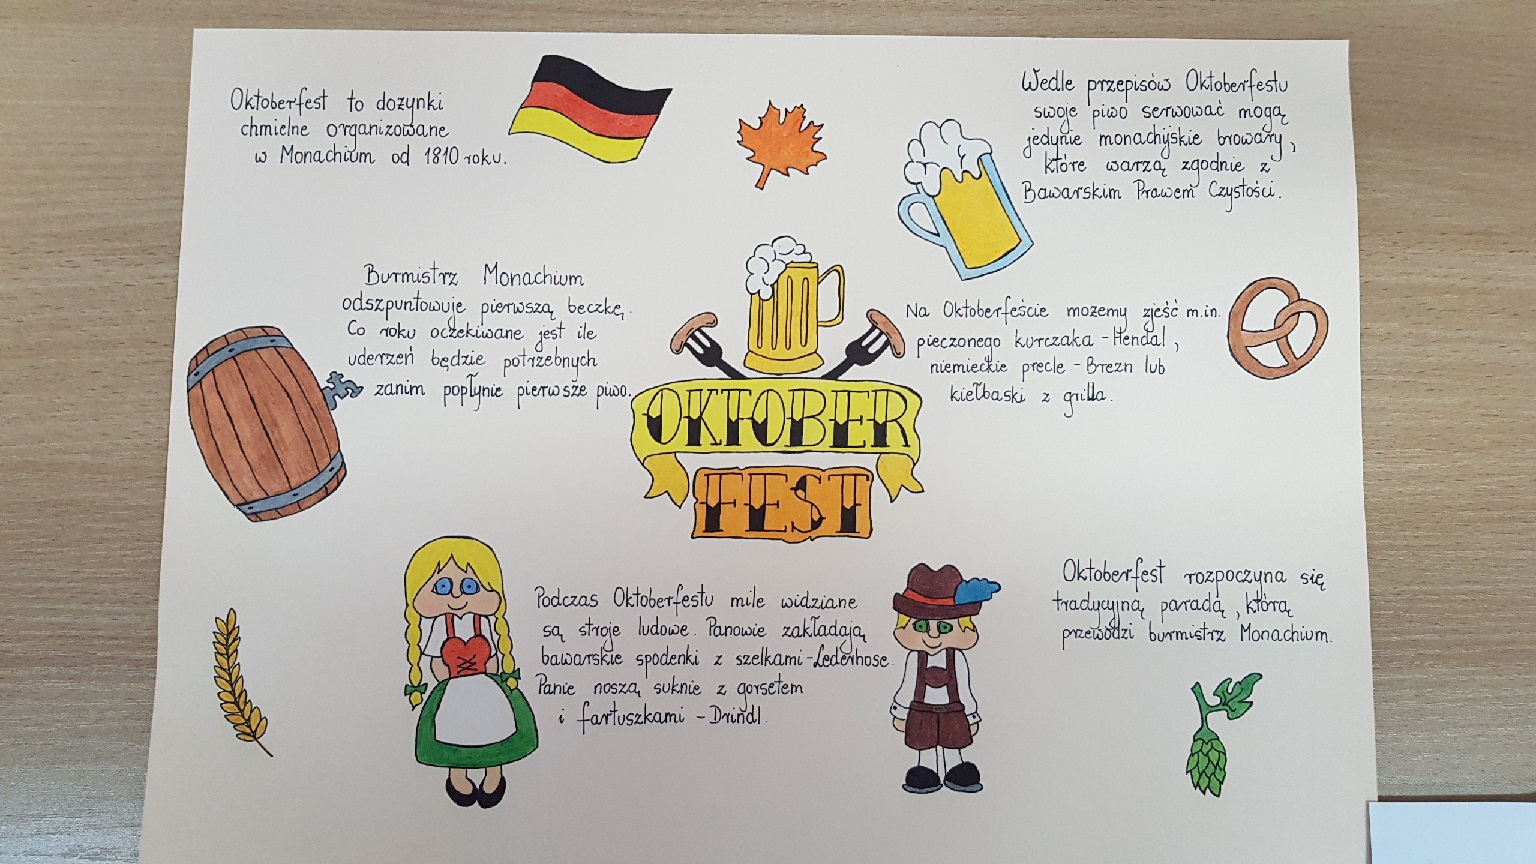 Oktoberfest to dożynki
chmielne organizowane
w Monachium od 1810 roku.
Wedle przepisów Oktoberfestu
swoje piwo serwować mogą
jedynie monachijskie browary,
które warzą zgodnie z
Bawarskim Prawem Czystości.
Burmistrz Monachium
odszpuntowuje pierwszą beczkę.
Co roku oczekiwane jest ile
uderzeń będzie potrzebnych
zanim popłynie pierwsze piwo.
Na Oktoberfeście możemy zjeść m.in.
pieczonego kurczaka - Hendal,
niemieckie precle - Brezn lub
kiełbaski z grilla.
OKTOBER
FEST
Podczas Oktoberfestu mile widziane
są stroje ludowe. Panowie zakładają
bawarskie spodenki z szelkami - Lederhose.
Panie noszą suknie z gorsetem
i fartuszkami - Drindl.
Oktoberfest rozpoczyna się
tradycyjną paradą, którą
przewodzi burmistrz Monachium.